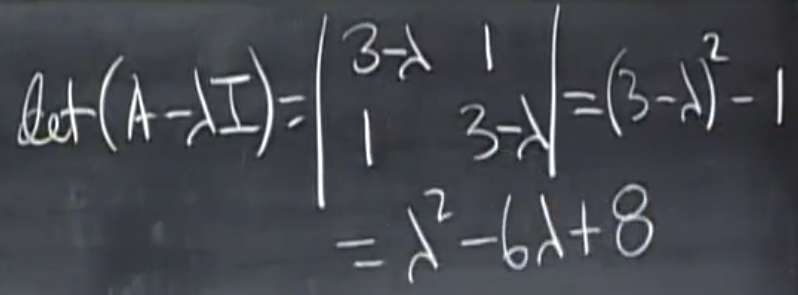 det(A-λI)=|3-λ 1
1 3-λ|=(3-λ)²-1
=λ²-6λ+8